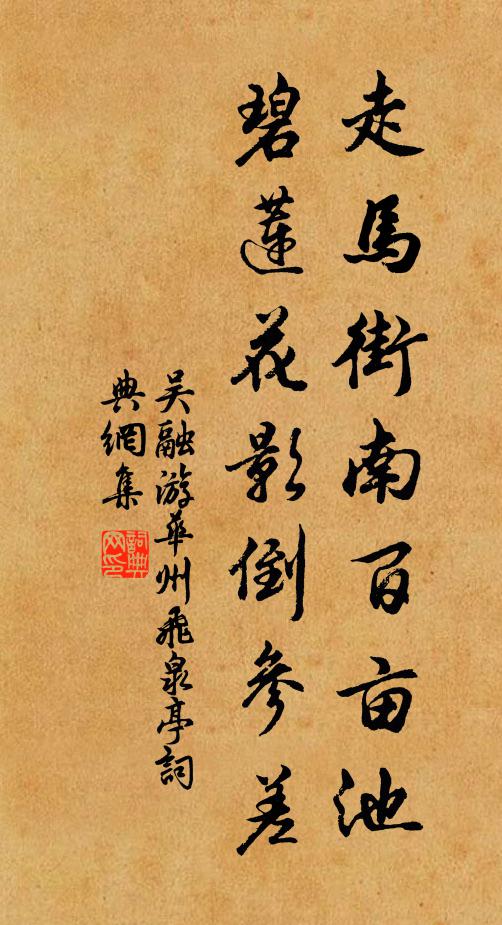 走馬街南百亩池
碧蓮花影倒參差
吴融游華州飛泉亭詞
典網集
詞典網印